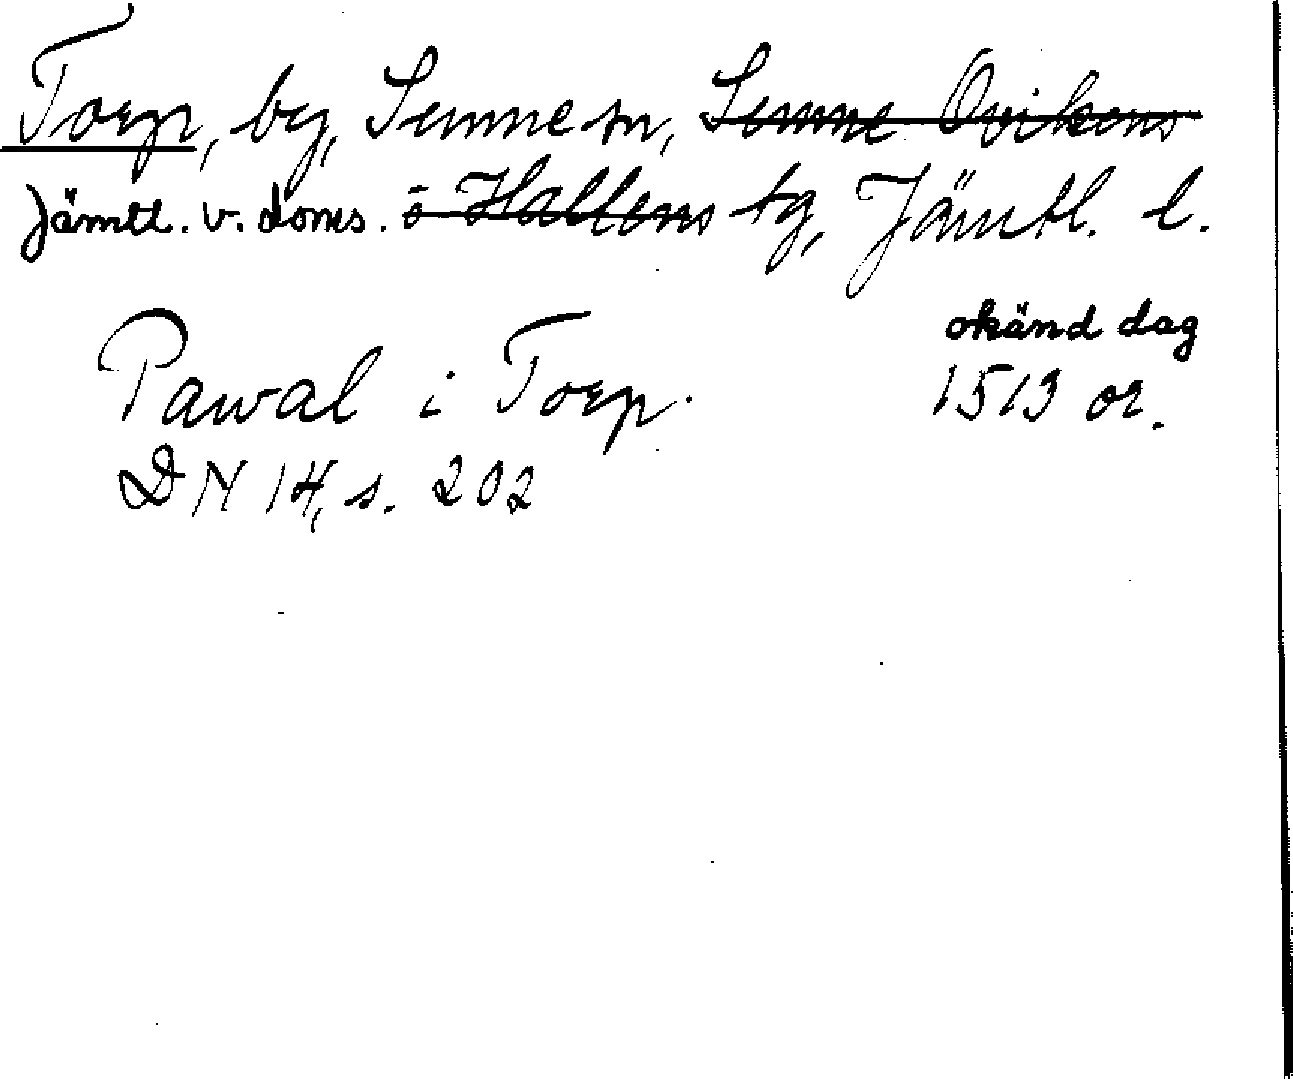 Torp, by, Sunne sn, Sunne Ovikens
Jämtl. v. doms. o Hallens tg, Jämtl. l.
okänd dag
Pawal i Torp. 1513 or.
DN 14, s. 202